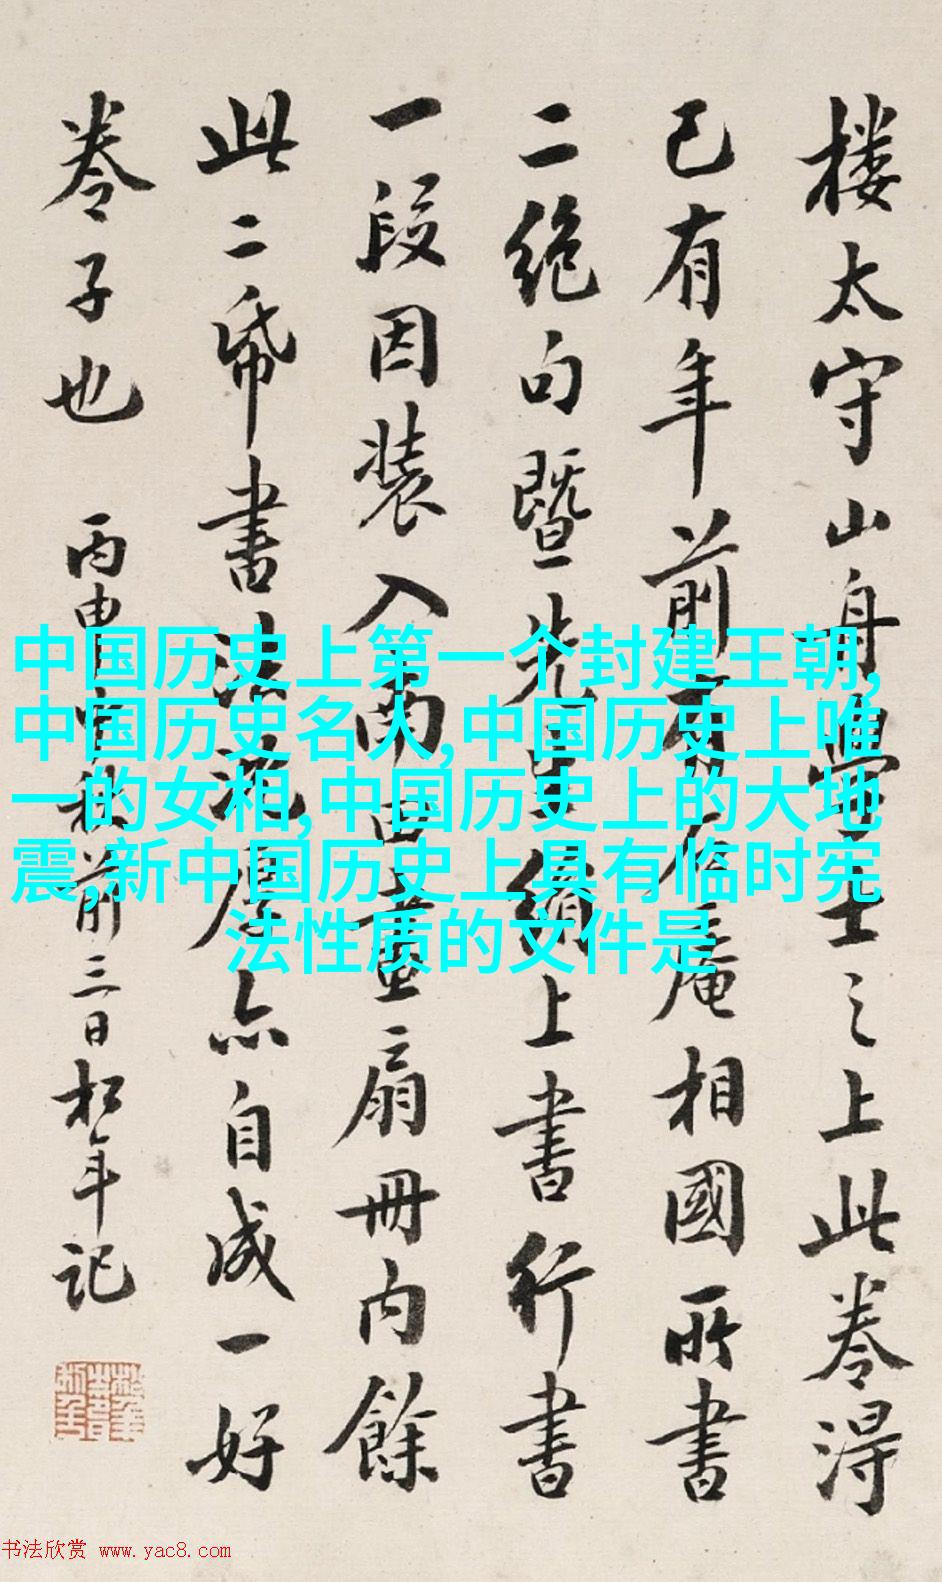 楼太守山舟學士之上此卷淂
已有年前有庵相國所書
二絕句暨先生續上書行書
一段因裝入兩田畫扇冊内餘
此二帋書法渾厚亦自成一好
卷子也 丙申中秋前三日松年記
中国历史上第一个封建王朝,
中国历史名人,中国历史上唯
一的女相,中国历史上的大地
震,新中国历史上具有临时宪
法性质的文件是
书法欣赏 www.yac8.com